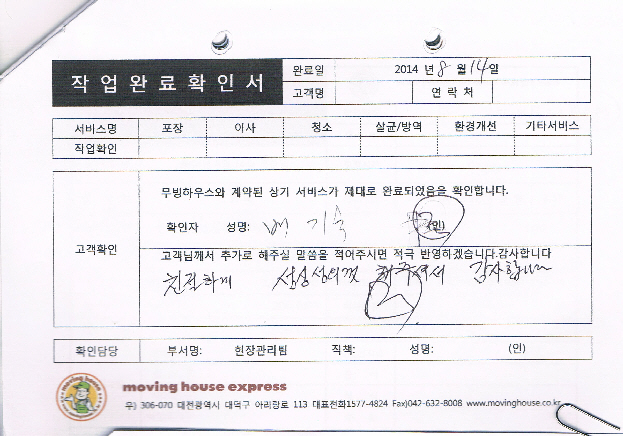 작업완료확인서
완료일 2014 년 8 월 14일
고객명 연락처
서비스명 포장 이사 청소 살균/방역 환경개선 기타서비스
작업확인
고객확인
무빙하우스와 계약된 상기 서비스가 제대로 완료되었음을 확인합니다.
확인자 성명: 배기숙 (인)
고객님께서 추가로 해주실 말씀을 적어주시면 적극 반영하겠습니다.감사합니다
친절하게 성심성의껏 해주셔서 감사합니다
확인담당 부서명: 현장관리팀 직책: 성명: (인)
moving house
moving house express
우) 306-070 대전광역시 대덕구 아리랑로 113 대표전화1577-4824 Fax)042-632-8008 www.movinghouse.co.kr